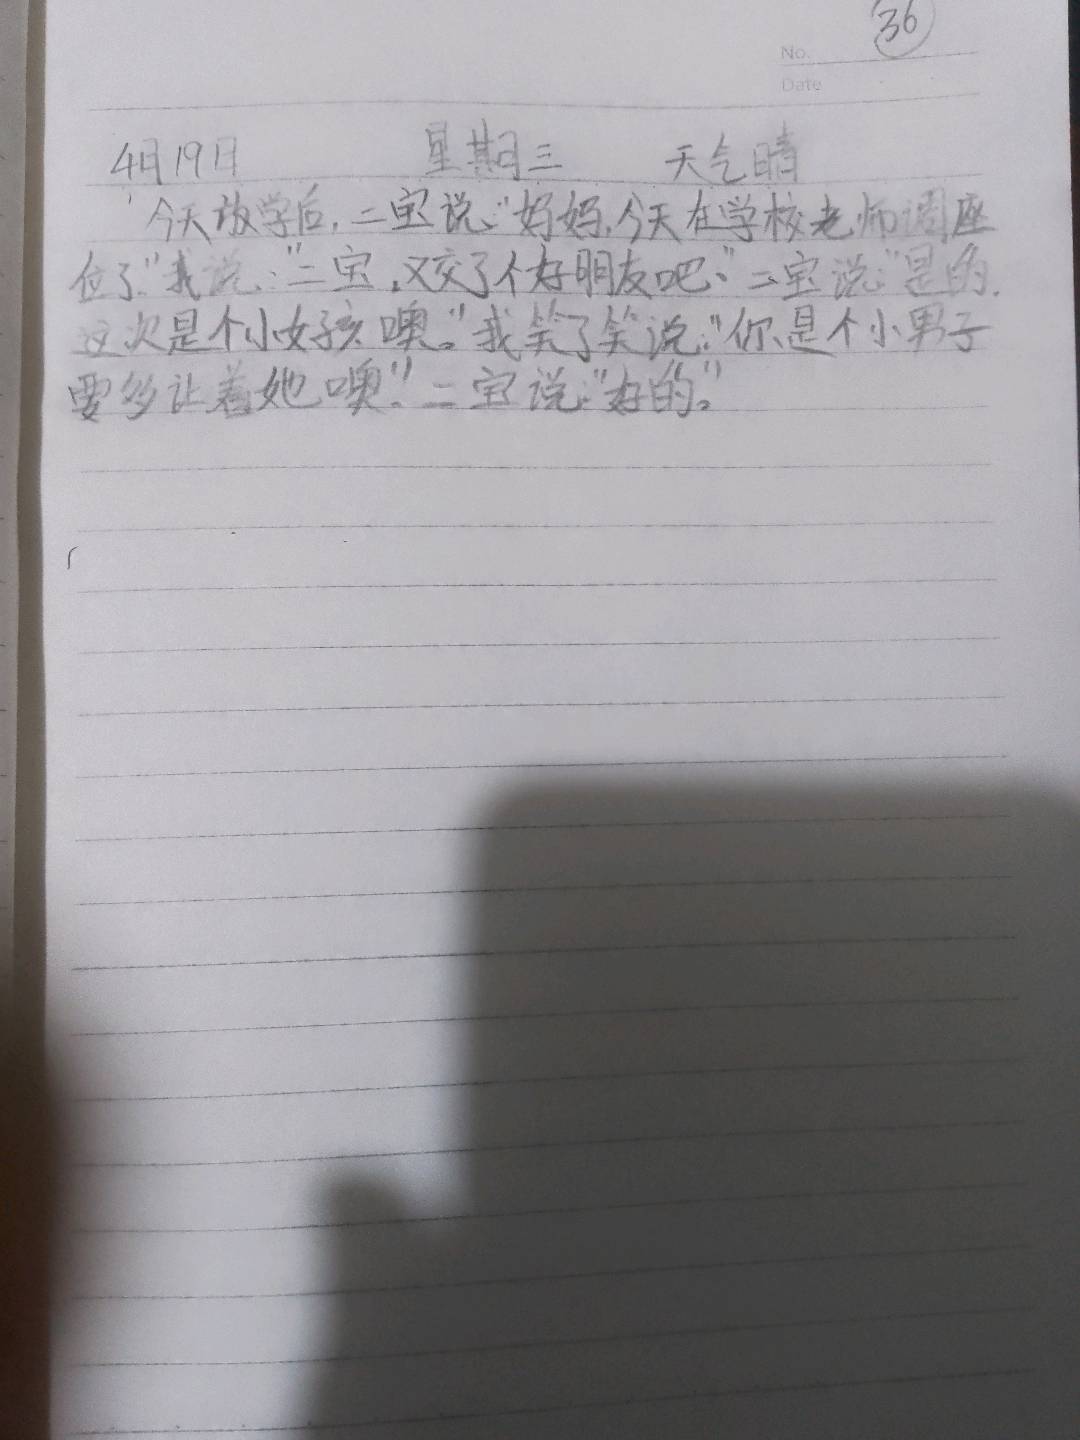 36
No.
Date
4月19日 星期三 天气晴
今天放学后,二宝说:"妈妈,今天在学校老师调座
位了"我说:"二宝,又交了个好朋友吧、"二宝说:"是的.
这次是个小女孩噢。"我笑了笑说:"你是个小男子
要多让着她噢!"二宝说:"好的。"